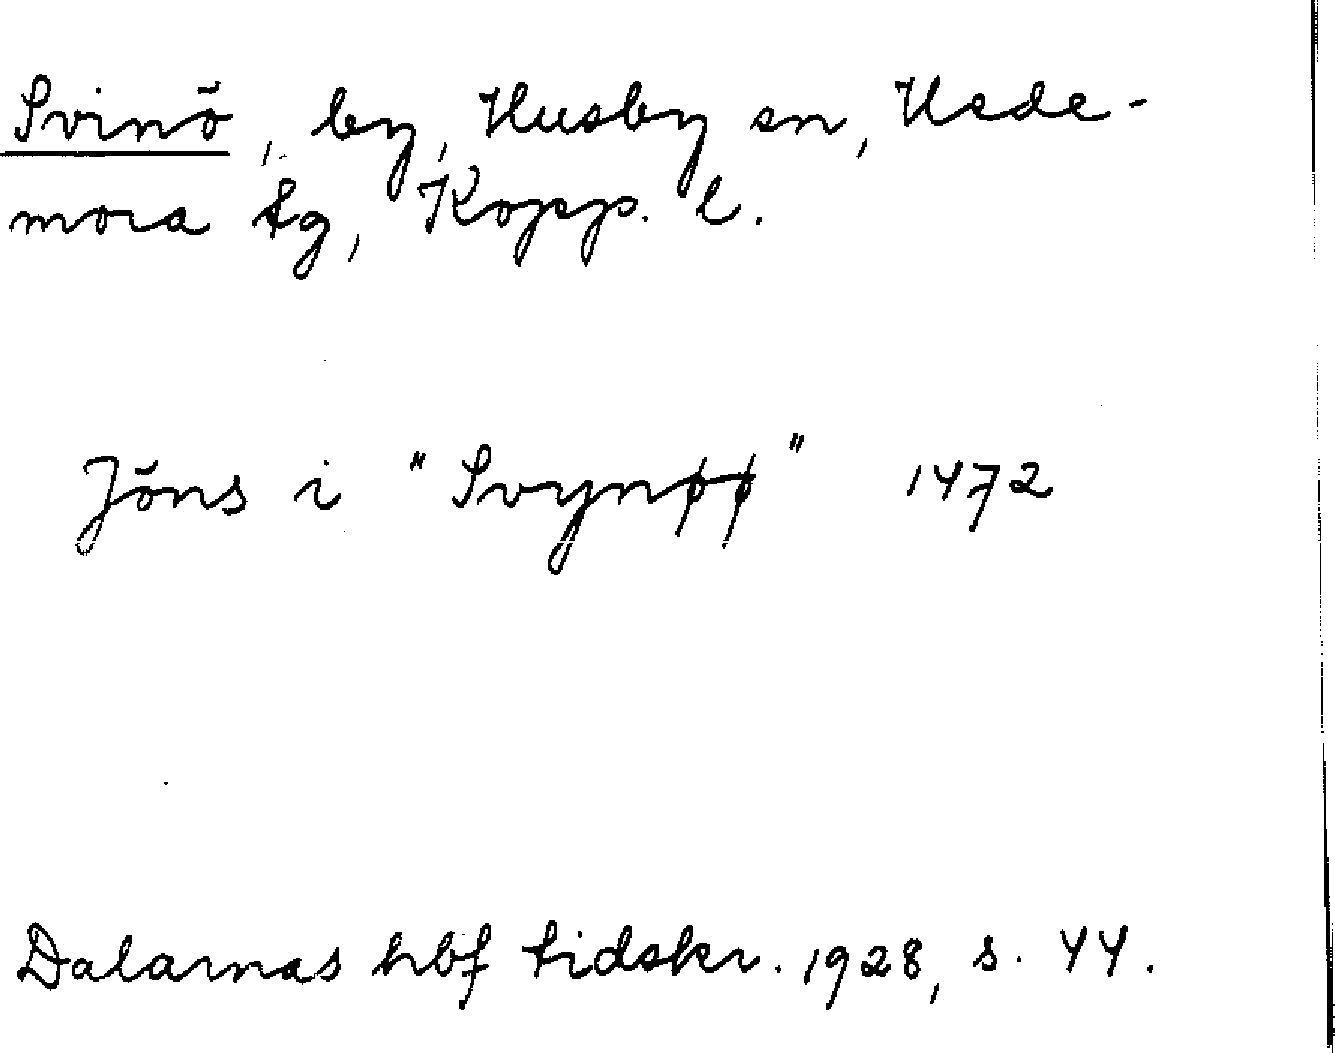 Svinö, by, Husby sn, Hede-
mora tg, Kopp. l.
Jöns i "Svynøø" 1472
Dalarnas hbf tidskr. 1928, s. 44.